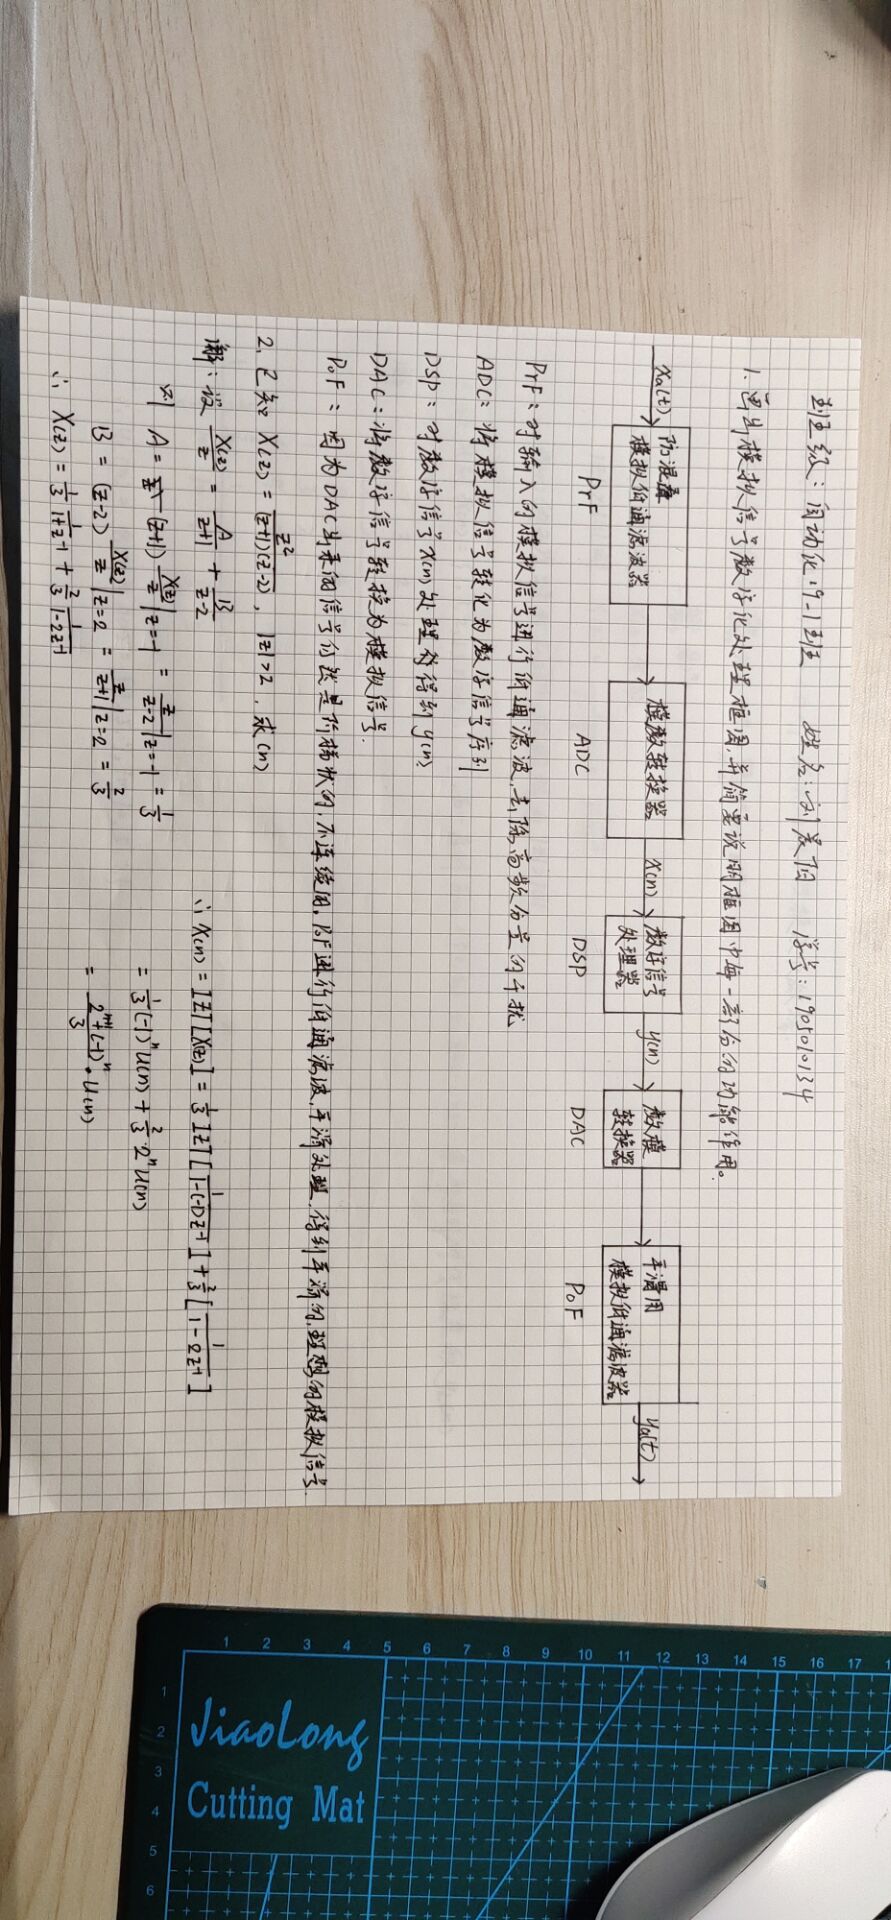 班级：自动化19-1班 姓名：刘晨阳 学号：1905010134
1.画出模拟信号数字化处理框图，并简要说明框图中每一部分的功能作用。
xa(t) 防混叠 模拟低通滤波器 模数转换器 x(n) 数字信号处理器 y(n) 数模转换器 平滑用 模拟低通滤波器 ya(t)
PrF ADC DSP DAC PoF
PrF：对输入的模拟信号进行低通滤波，去除高频分量的干扰
ADC：将模拟信号转化为数字信号序列
DSP：对数字信号x(n)处理得到y(n)
DAC：将数字信号转换为模拟信号.
PoF：因为DAC出来的信号仍然是阶梯状的，不连续的，PoF进行低通滤波，平滑处理，得到平滑的，理想的模拟信号.
2. 已知 X(z) = z²/((z+1)(z-2)), |z|>2, 求(n)
解：设 X(z)/z = A/(z+1) + B/(z-2)
则 A = (z+1) X(z)/z |z=-1 = z/(z-2) |z=-1 = 1/3
B = (z-2) X(z)/z |z=2 = z/(z+1) |z=2 = 2/3
∴ X(z) = 1/3 1/(1+z⁻¹) + 2/3 1/(1-2z⁻¹)
∴ x(n) = IZT[X(z)] = 1/3 IZT[1/(1-(-1)z⁻¹)] + 2/3 [1/(1-2z⁻¹)]
= 1/3 (-1)ⁿ u(n) + 2/3 · 2ⁿ u(n)
= (2ⁿ⁺¹+(-1)ⁿ)/3 · u(n)
JiaoLong
Cutting Mat
1 2 3 4 5 6 7 8 9 10 11 12 13 14 15 16 17
1 2 3 4 5 6